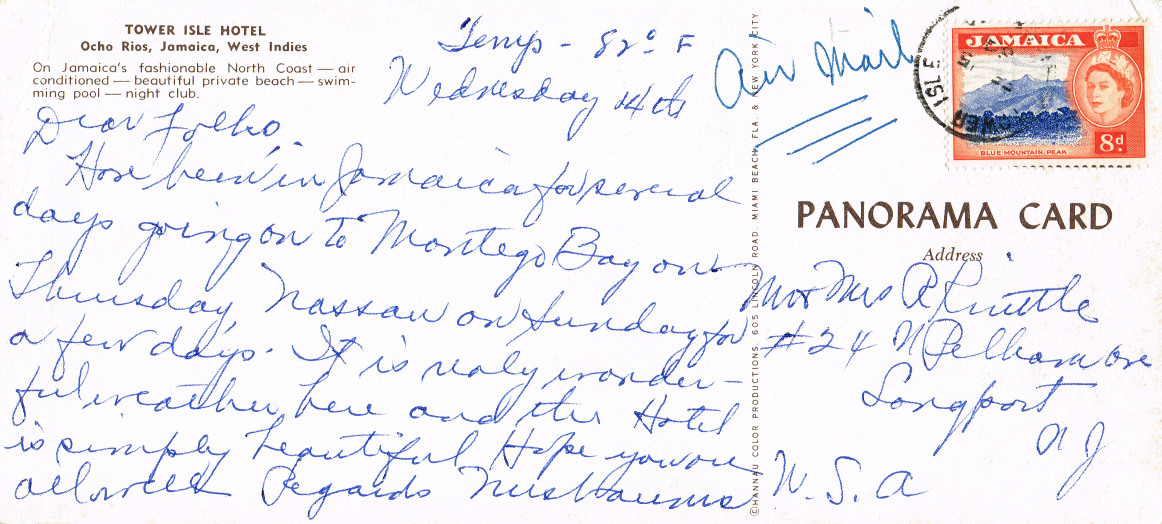 TOWER ISLE HOTEL
Ocho Rios, Jamaica, West Indies
On Jamaica's fashionable North Coast — air
conditioned — beautiful private beach — swim-
ming pool — night club.
Temp - 82° F
Wednesday 14th
Dear Folks.
Have been in Jamaica for several
days going on to Montego Bay on
Thursday Nassau on Sunday for
a few days. It is realy wonder-
ful weather here and the Hotel
is simply beautiful Hope you are
all well Regards Nusbaums
©HANNAU COLOR PRODUCTIONS 605 LINCOLN ROAD, MIAMI BEACH, FLA. & NEW YORK CITY
Air Mail
TOWER ISLE
JAMAICA
BLUE MOUNTAIN PEAK
8d
PANORAMA CARD
Address
Mr & Mrs R
#24 N Pelham Ave
Longport
N J
U. S. A